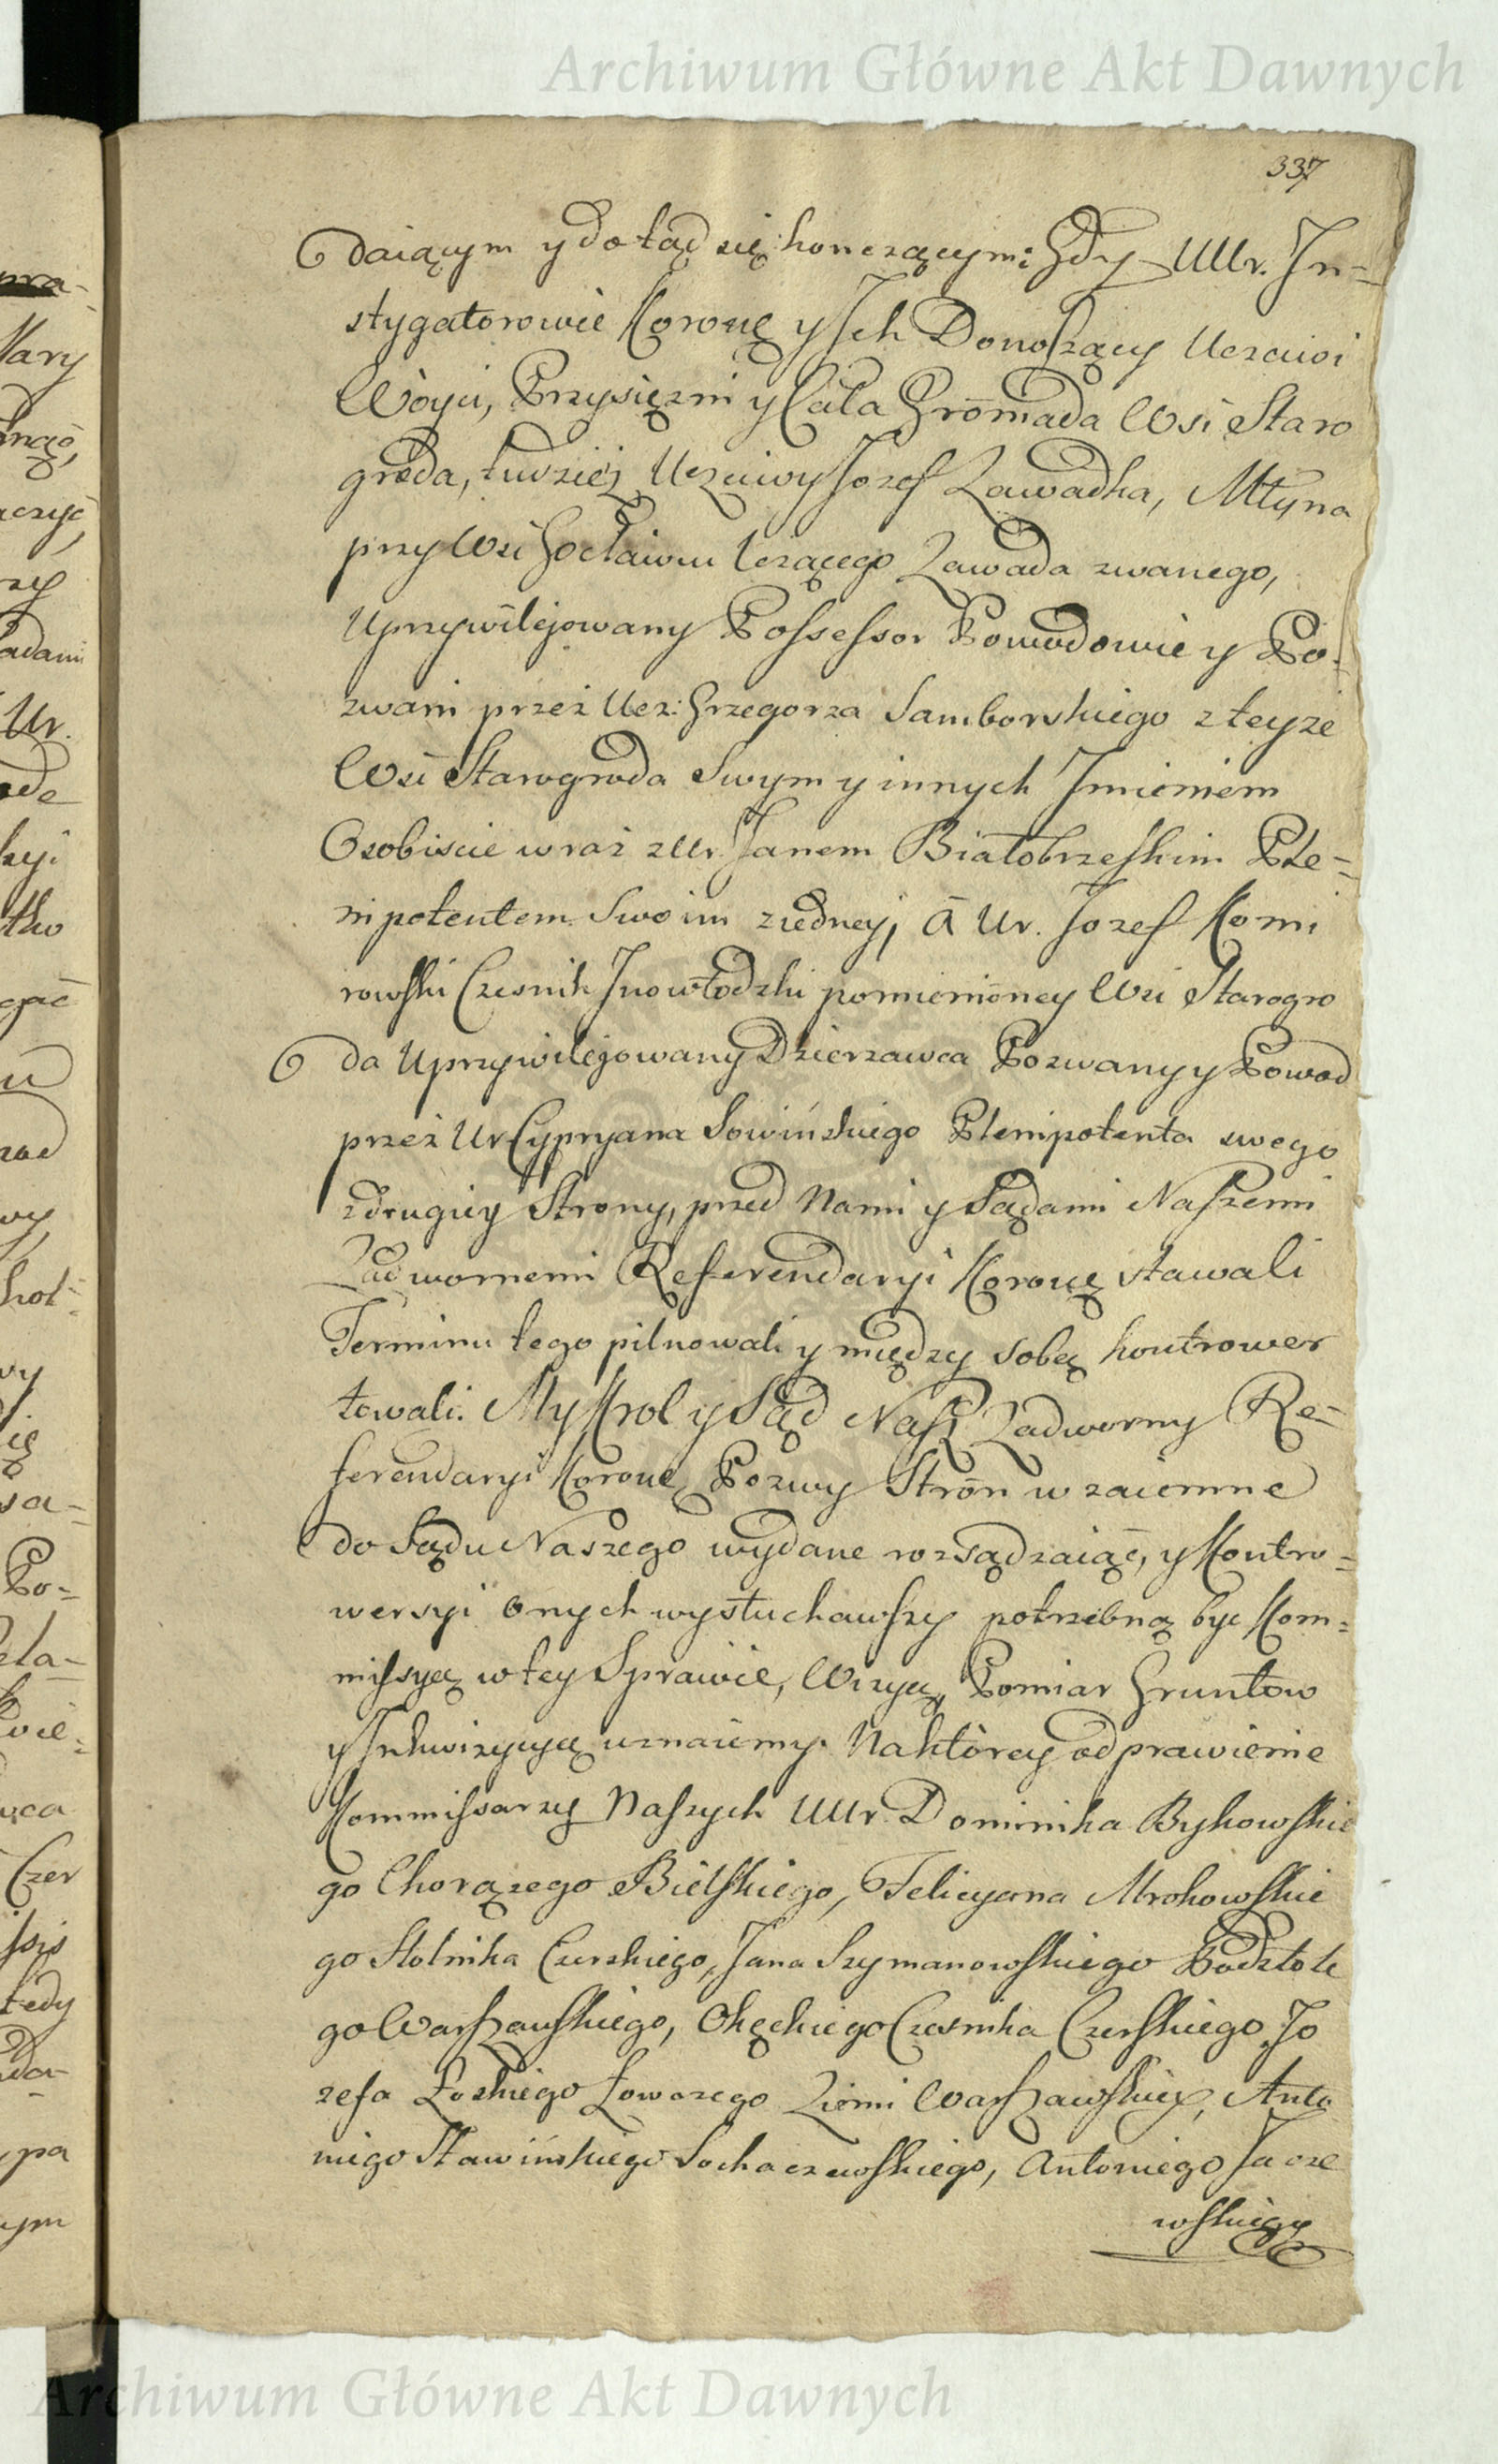 Archiwum Główne Akt Dawnych
337
daiącym y dotąd się konczącym: Gdy UUr. In-
stygatorowie Koronę y Ich Donoszący Uczciwi
Woyci, Przysięzni y Cała Gromada Wsi Staro
groda, tudziez Uczciwy Jozef Zawadka, Młyna
przy Wsi Gocławiu lezącego Zawada zwanego,
Uprzywilejowany Possessor Powodowie y Po-
zwani przez Ucz: Grzegorza Samborskiego z teyze
Wsi Starogroda Swym y innych Imieniem
Osobiscie wraz z Ur. Janem Białobrzeskim Ple-
nipotentem Swoim z iedney, a Ur. Jozef Komi
rowski Czesnik Inowłodzki pomienioney Wsi Starogro
da Uprzywilejowany Dzierzawca Pozwany y Powod
przez Ur Cypryana Sowińskiego Plenipotenta swego
z drugiey Strony, przed Nami y Sądami Naszemi
Zadwornemi Referendaryi Koronę stawali
Terminu tego pilnowali y między sobą kontrower
towali. My Krol y Sąd Nasz Zadworny Re-
ferendaryi Koronę Pozwy Stron wzaiemne
do Sądu Naszego wydane rozsądzaiąc, y Kontro-
wersyi onych wysłuchawszy potrzebną byc Kom-
missyą w tey Sprawie, Wizyą, Pomiar Gruntow
y Inkwizycyą uznaiemy. Na ktorey odprawienie
Kommissarzy Naszych UUr Dominika Bykowskie
go Chorązego Bielskiego, Felicyana Mrokowskie
go Stolnika Czerskiego, Jana Szymanowskiego Podstole
go Warszawskiego, Okęckiego Czesnika Czerskiego Jo
zefa Łoskiego Łowczego Ziemi Warszawskiey, Anto
niego Sławińskiego Sochaczewskiego, Antoniego Jacze
wskiego
Archiwum Główne Akt Dawnych